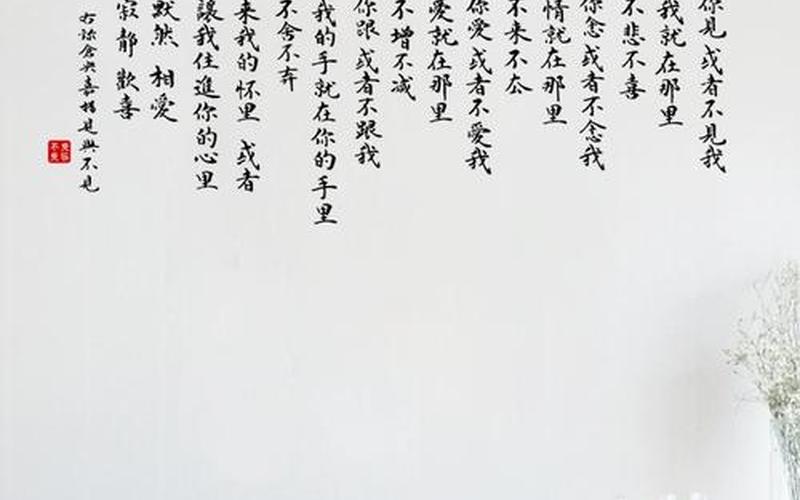 你見或者不見我
我就在那里
不悲不喜
你念或者不念我
情就在那里
不来不去
你愛或者不愛我
愛就在那里
不增不减
你跟或者不跟我
我的手就在你的手里
不舍不弃
来我的怀里 或者
讓我住進你的心里
默然 相愛
寂静 歡喜